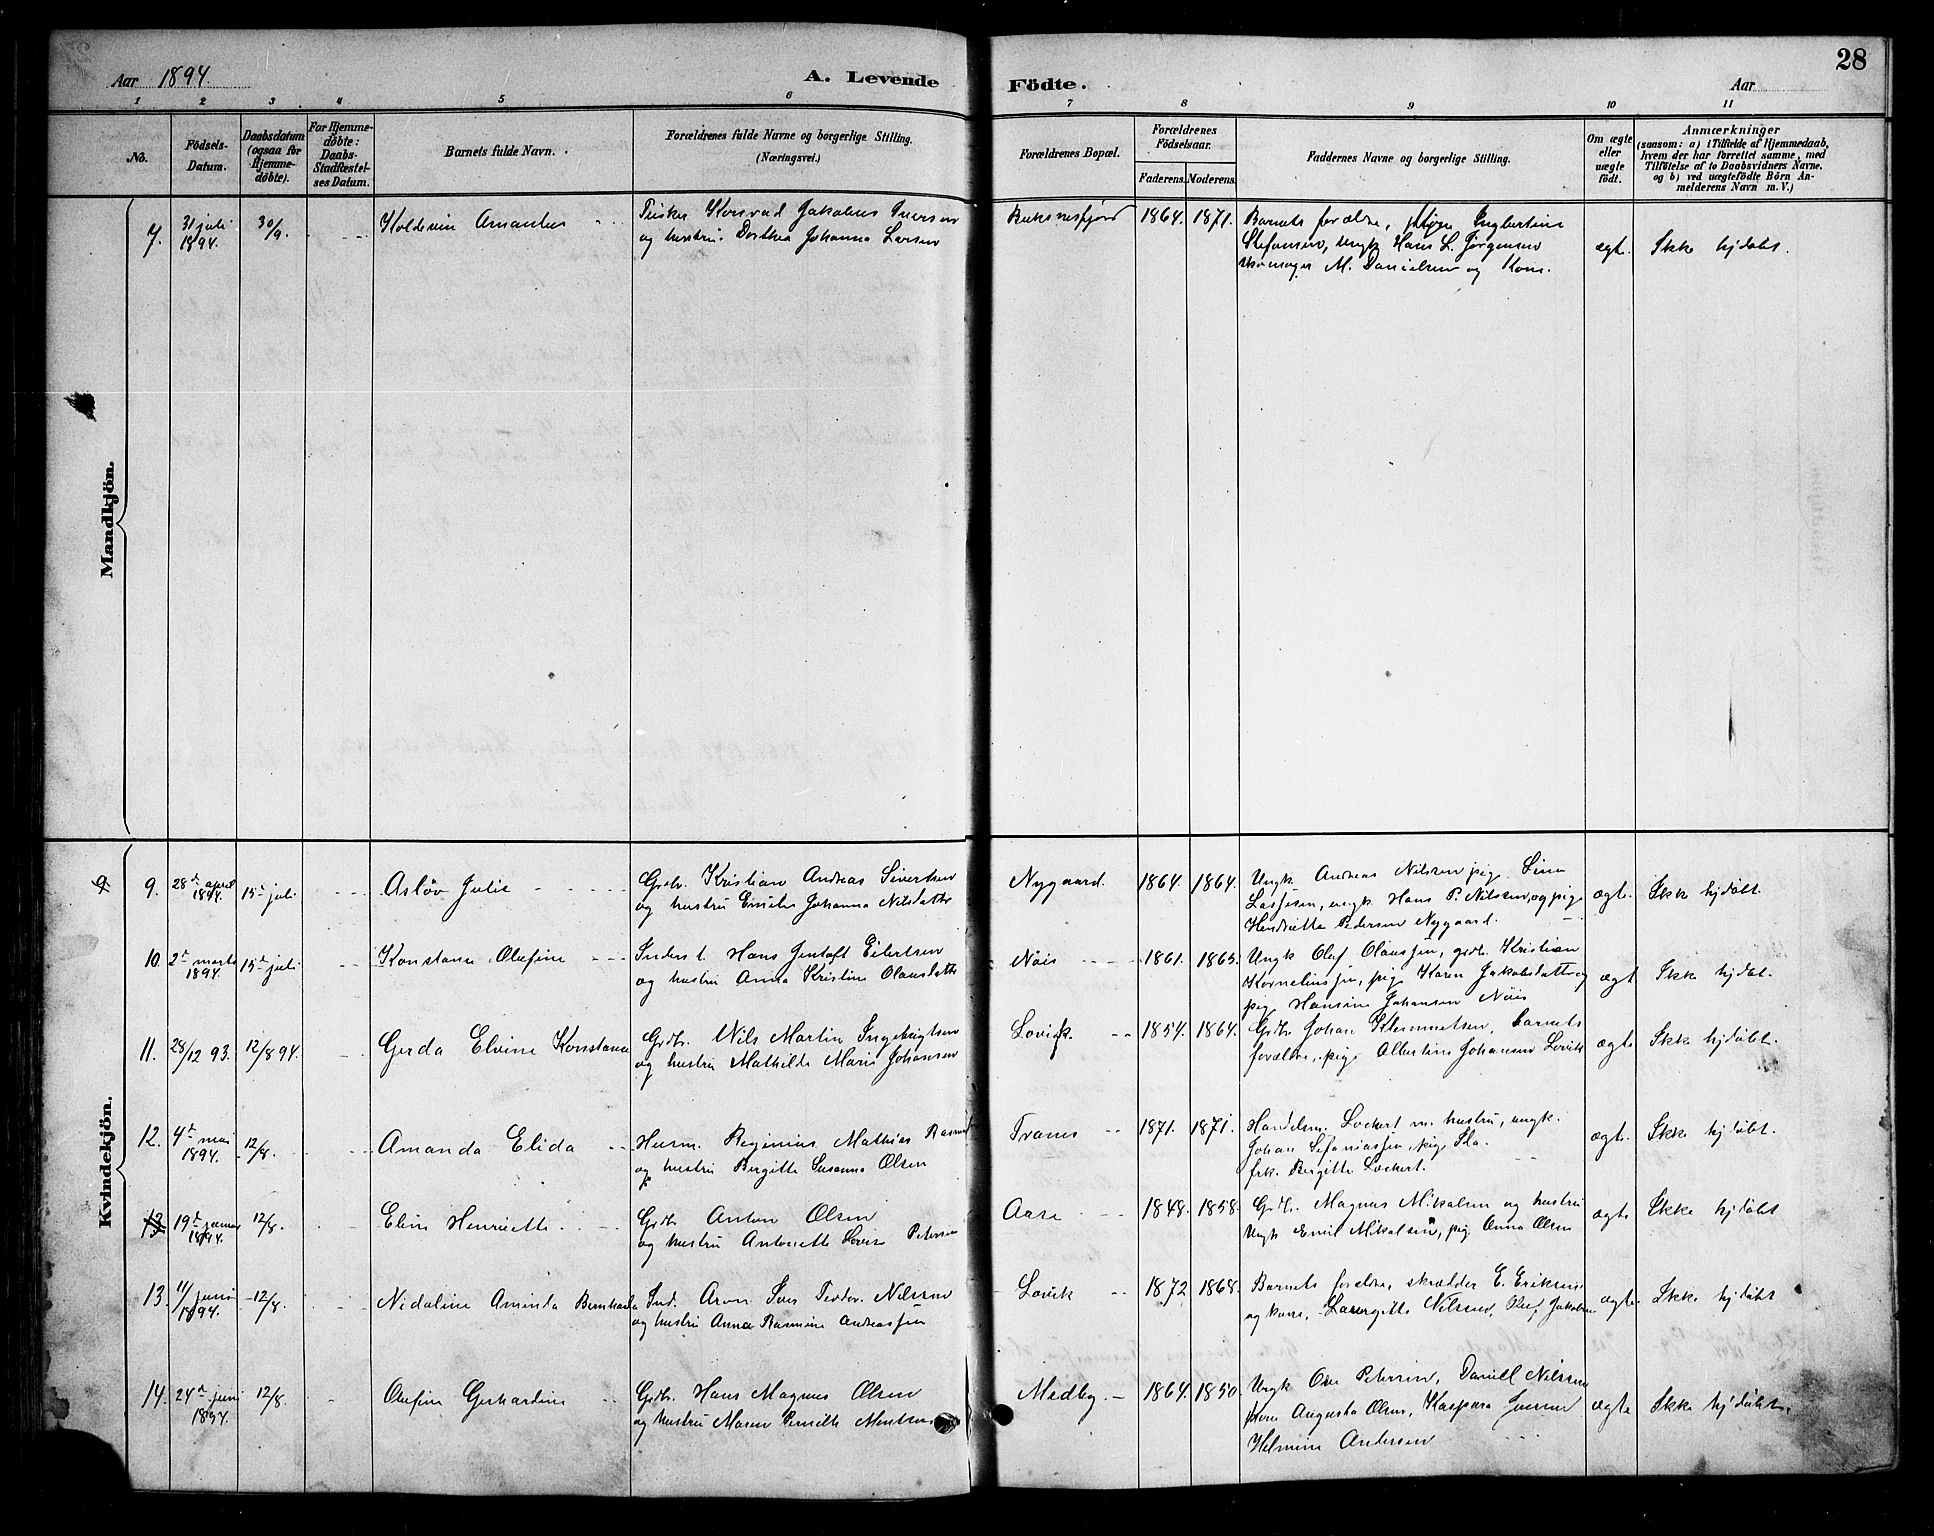 Aar 1894.
A. Levende Födte.
Aar
28
1 2 3 4 5 6 7 8 9 10 11
No.
Födsels-Datum.
Daabsdatum (ogsaa for Hjemme-døbte).
For Hjemme-døbte: Daabs-Stadfæstel-ses Datum.
Barnets fulde Navn.
Forældrenes fulde Navne og borgerlige Stilling.
(Næringsvei.)
Forældrenes Bopæl.
Forældrenes Födselsaar.
Faderens. Moderens.
Faddernes Navne og borgerlige Stilling.
Om ægte eller uægte födt.
Anmærkninger
(saasom: a) i Tilfælde af Hjemmedaab,
hvem der har forrettet samme, med
Tilföielse af to Daabsvidners Navne,
og b) ved uægtefödte Börn An-
melderens Navn m. V.)
Mandkjön.
7. 31 juli 1894. 30/9. Koldevin Amandus
Fisker Konrad Jakobus Iversen
og hustru Dorthea Johanna Larsen
Buksnesfjord 1864. 1871.
Barnets forældre, Engbertine
Stefansen, ungk Hans L. Jørgensen
skomager M. Danielsen og Kone.
ægte. Ikke hjdøbt.
Kvindekjön.
9 9. 28de april 1894. 15de juli Asløv Julie
Grdbr. Kristian Andreas Sivertsen
og hustru Emelie Johanna Nilsdatter
Nygaard. 1864. 1864.
Ungk Andreas Nilsen pige Lina
ungk Hans P. Nilsen, og pige
Henriette Pedersen Nygaard.
ægte. Ikke hjdøbt.
10. 2de marts 1894. 15de juli Konstanse Olufine
Inderst Hans Gentoft Eilertsen
og hustru Anna Kristine Olausdatter
Nøis 1861. 1865.
Ungk Oluf Olaussen, grdb. Kristian
Korneliussen, pige Karen Jakobsdatter og
pige Hansine Johansen Nøis
ægte Ikke hjdøbt.
11. 28/12 93. 12/8 94. Gerda Elvine Konstanse
Grdbr. Nils Martin Ingebrigtsen
og hustru Mathilde Marie Johansen
Lovik. 1854. 1864.
Grdbr. Johan Klemmetsen, barnets
forældre, pige Albertine Johansen Lovik
ægte Ikke hjdøbt.
12. 4de mai 1894. 12/8. Amanda Elida
Husm. Reginius Mathias
og hustru Bergitte Susanna Olsen
Tranes 1871. 1871.
Handelsm. Lockert m. hustru, ungk.
Johan pige
frk. Bergitte Lockert.
ægte. Ikke hjdøbt.
13 19de januar 1894. 12/8. Eline Henriette
Grdbr Anton Olsen
og hustru Antonette Lovise Petersen
Aase 1848. 1858.
Grdbr. Magnus Mikalsen og hustru
Ungk Emil Mikalsen, pige Anna Olsen
ægte Ikke hjdøbt
13. 11/juni 1894. 12/8. Nidaline Aminda Bernharda
Ind. Aron Sven Teodor Nilssen
og hustru Anna Rasmine Andreassen
Lovik 1872 1868.
Barnets forældre, skrædder E. Eriksen
og kone, Laurgitte Nilssen, Oluf Jakobsen
ægte. Ikke hjdøbt
14. 24de juni 1894. 12/8. Olufine Gerhardine
Grdbr. Hans Magnus Olsen
og hustru Maren Pernille
Medby. 1864. 1850.
Ungk Ole Petersen, Daniel Nilssen
Augusta Olsen, Kaspara
Helmine Andersen
ægte Ikke hjdøbt.